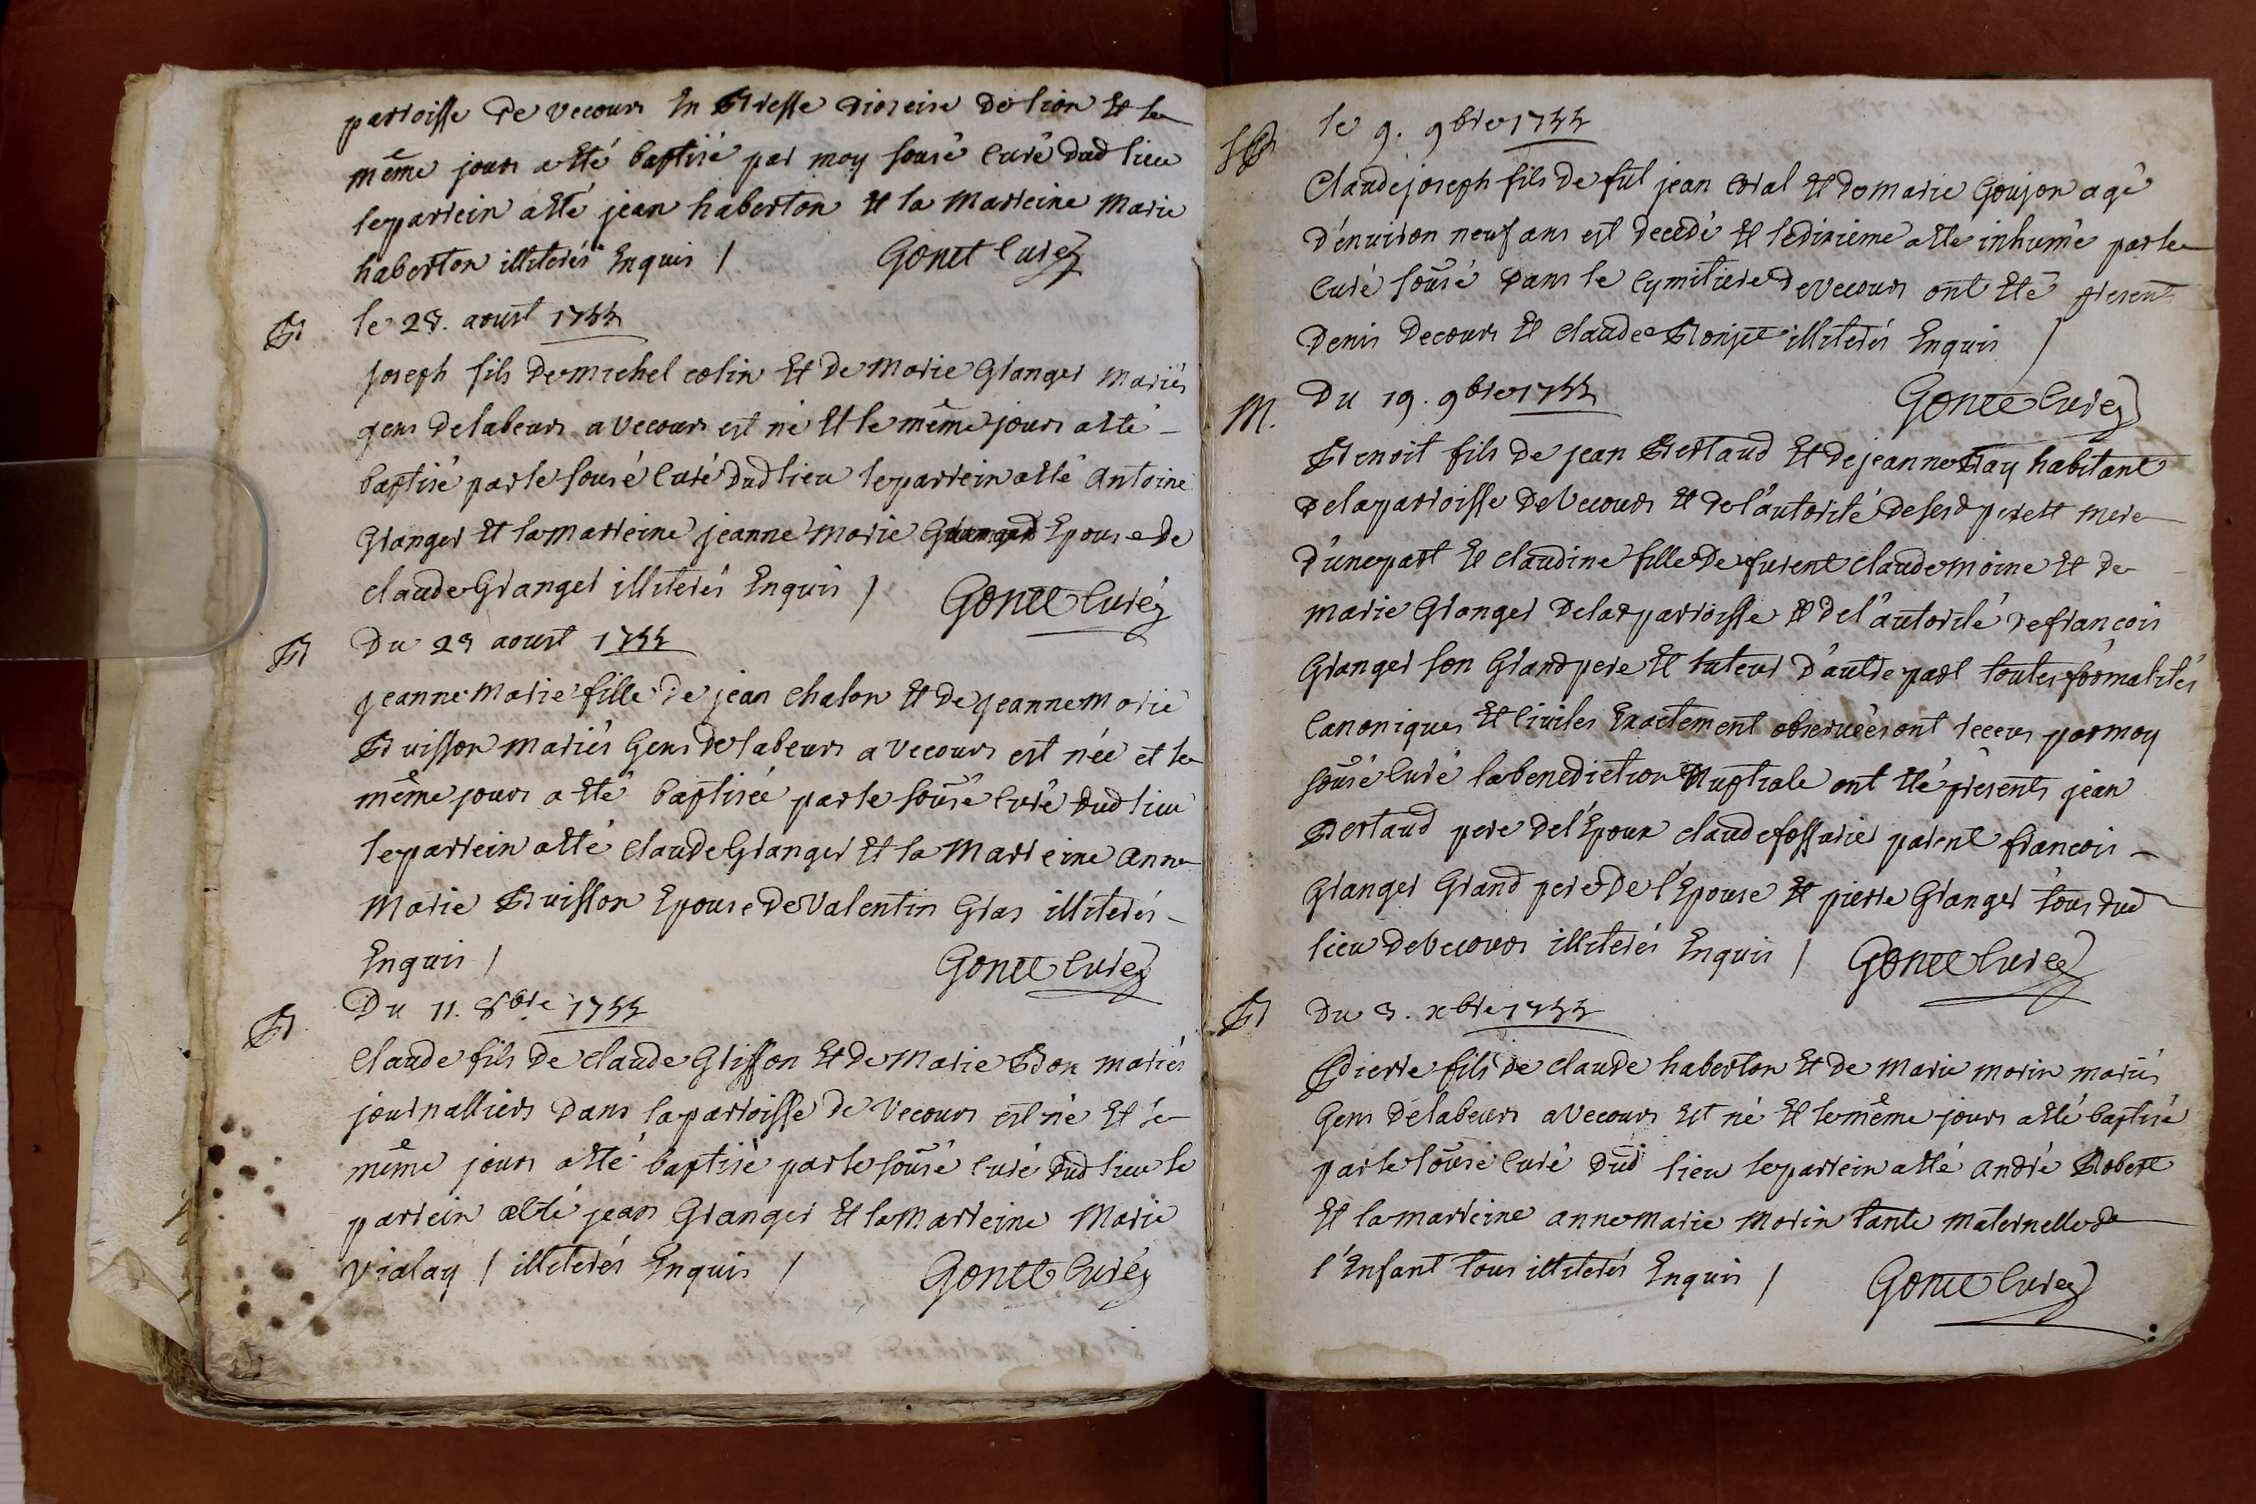 parroisse de vecours En Bresse dioceise de lion Et le
même jours a Eté baptisé par moy sousé Curé dud lieu
le parrein a Eté jean haberton Et la Marreine Marie
haberton illiterés Enquis /
Gonet Curé
B
le 28. aoust 1755
joseph fils de michel colin Et de Marie Granger Mariés
gens de labeurs a vecours est né Et le même jours a Eté
baptisé par le sousé Curé dud lieu le parrein a Eté Antoine
Granger Et la marreine jeanne Marie Epouse de
claude Granger illiterés Enquis /
Gonet Curé
B
Du 29 aoust 1755
jeanne Marie fille de jean chalon Et de jeanne Marie
Buisson mariés Gens de labeurs a vecours est née et le
même jours a Eté baptisée par le sousé Curé dud lieu
le parrein a Eté Claude Granger Et la Marreine Anne
Marie Buisson Epouse de Valentin Gras illiterés
Enquis /
Gonet Curé
B
Du 11. 8bre 1755
Claude fils de claude Grisson Et de Marie Bon mariés
journalliers dans la parroisse de Vecours est né Et le
même jours a Eté baptisé par le sousé Curé dud lieu le
parrein a Eté jean Granger Et la Marreine Marie
vialay / illiterés Enquis /
Gonet Curé
le 9. 9bre 1755
Claude joseph fils de fut jean Coral Et de marie Goujon agé
d'environ neuf ans est decedé Et le dixieme a Eté inhumé par le
Curé sousé dans le Cymitiere de vecours ont Eté presents
Denis Decours Et claude Bonjet illiterés Enquis /
Gonet Curé
M.
Du 19. 9bre 1755
Benoit fils de jean Bertaud Et de jeanne Bay habitant
de la parroisse de Vecours Et de l'autorité de sesd pere Et mere
d'une part Et claudine fille de furent claude moine Et de
marie Granger de lad parroisse Et de l'autorité de françois
Granger son Grand pere Et tuteur d'autre part toutes formalités
Canoniques Et Civiles Exactement observées ont receus par moy
sousé Curé la benediction Nuptiale ont Eté presents jean
Bertaud pere de l'Epoux claude fossarier parent françois
Granger Grand pere de l'Epouse Et pierre Granger tous dud
lieu de Vecours illiterés Enquis /
Gonet Curé
B
Du 3. xbre 1755
Pierre fils de claude haberton Et de Marie morin mariés
Gens de labeurs a Vecours Est né Et le même jours a Eté baptisé
par le sousé Curé dud lieu le parrein a Eté andré Robert
Et la marreine anne marie Morin tante maternelle de
l'Enfant tous illiterés Enquis /
Gonet Curé